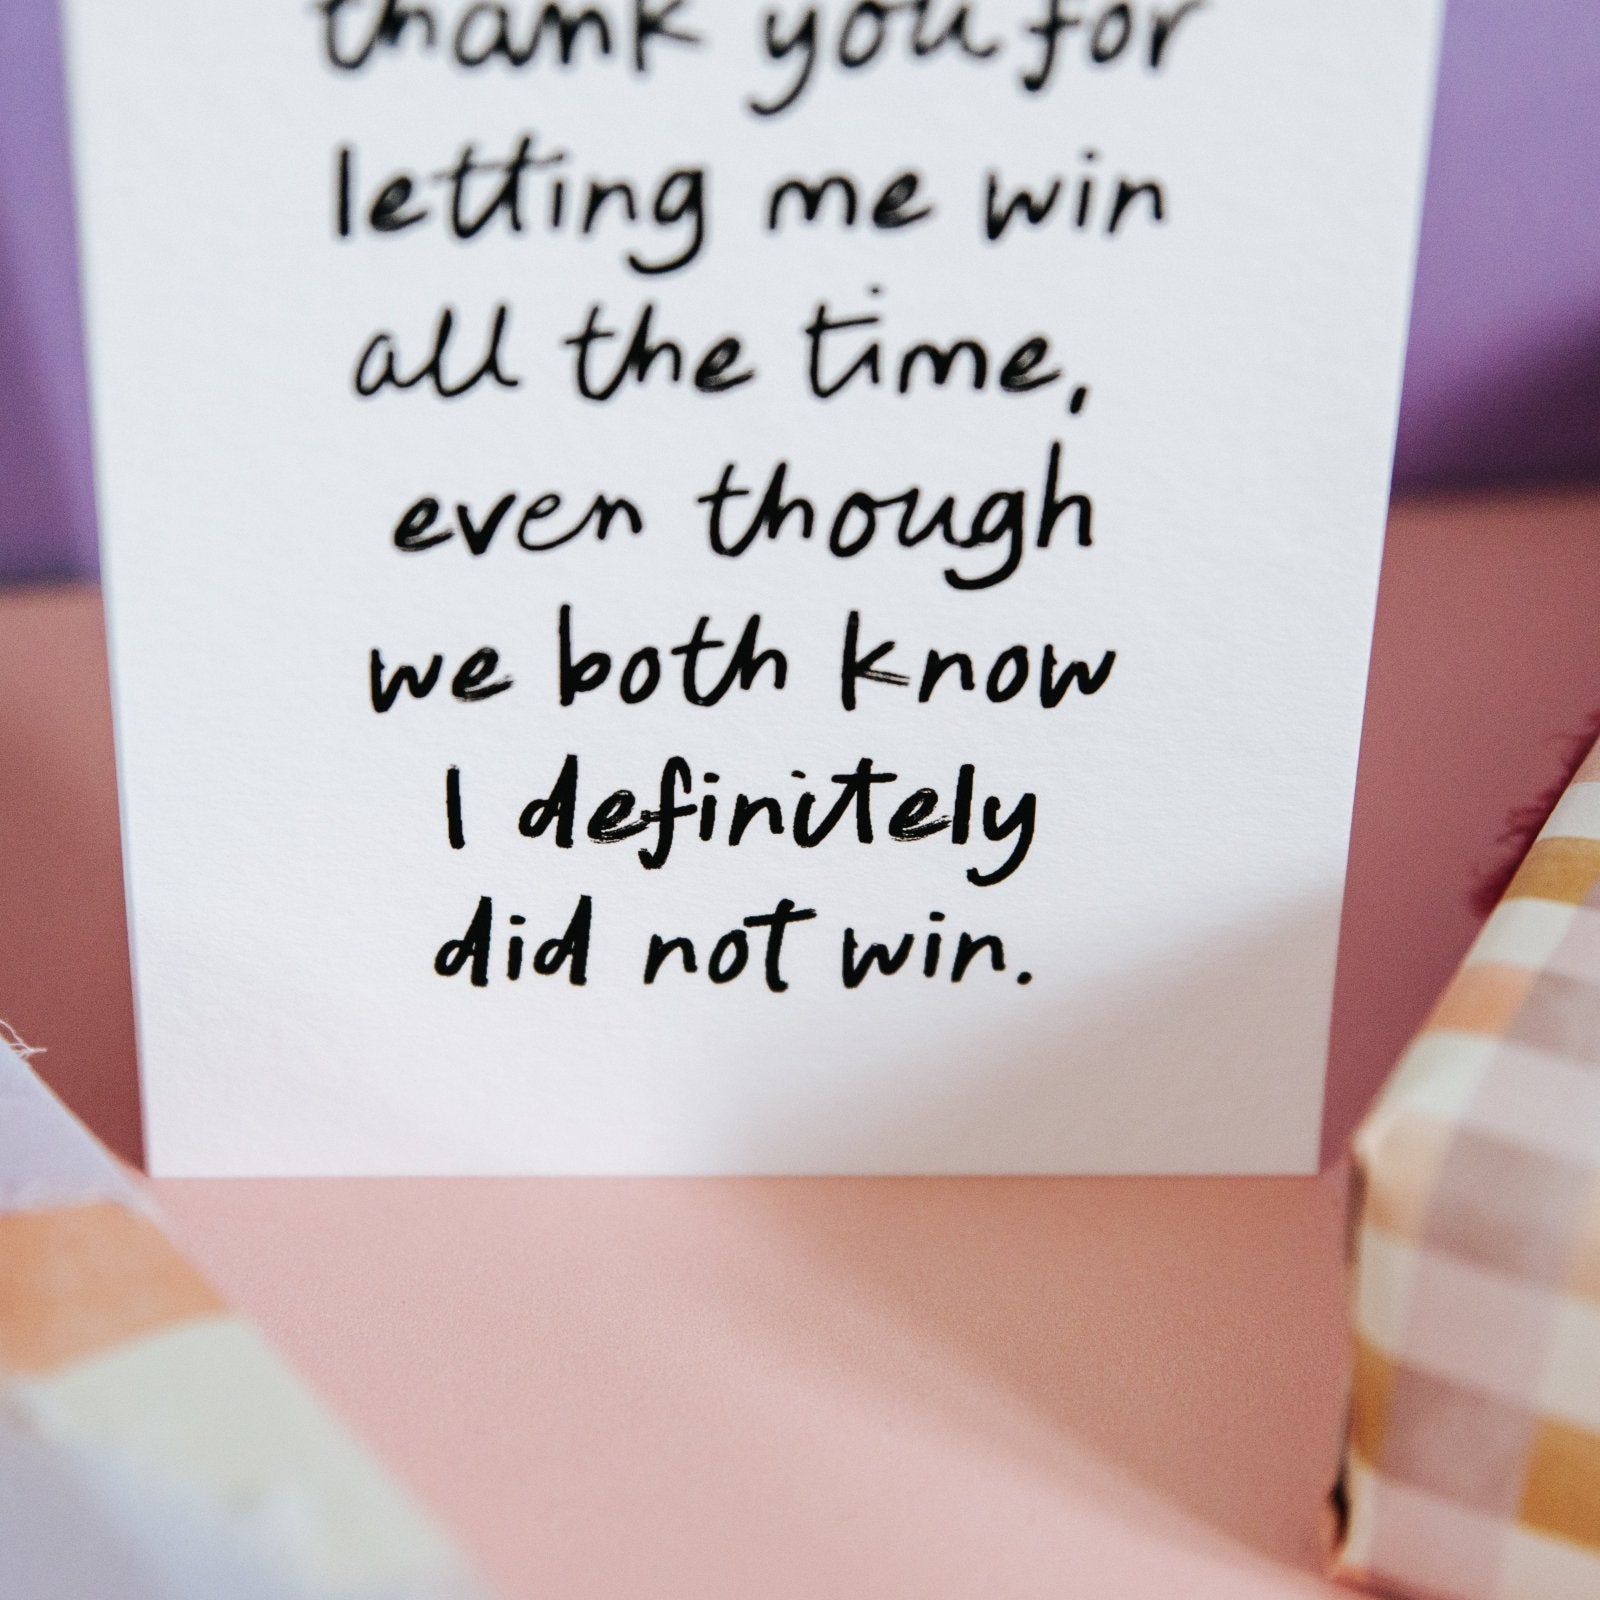 thank you for
letting me win
all the time,
even though
we both know
I definitely
did not win.